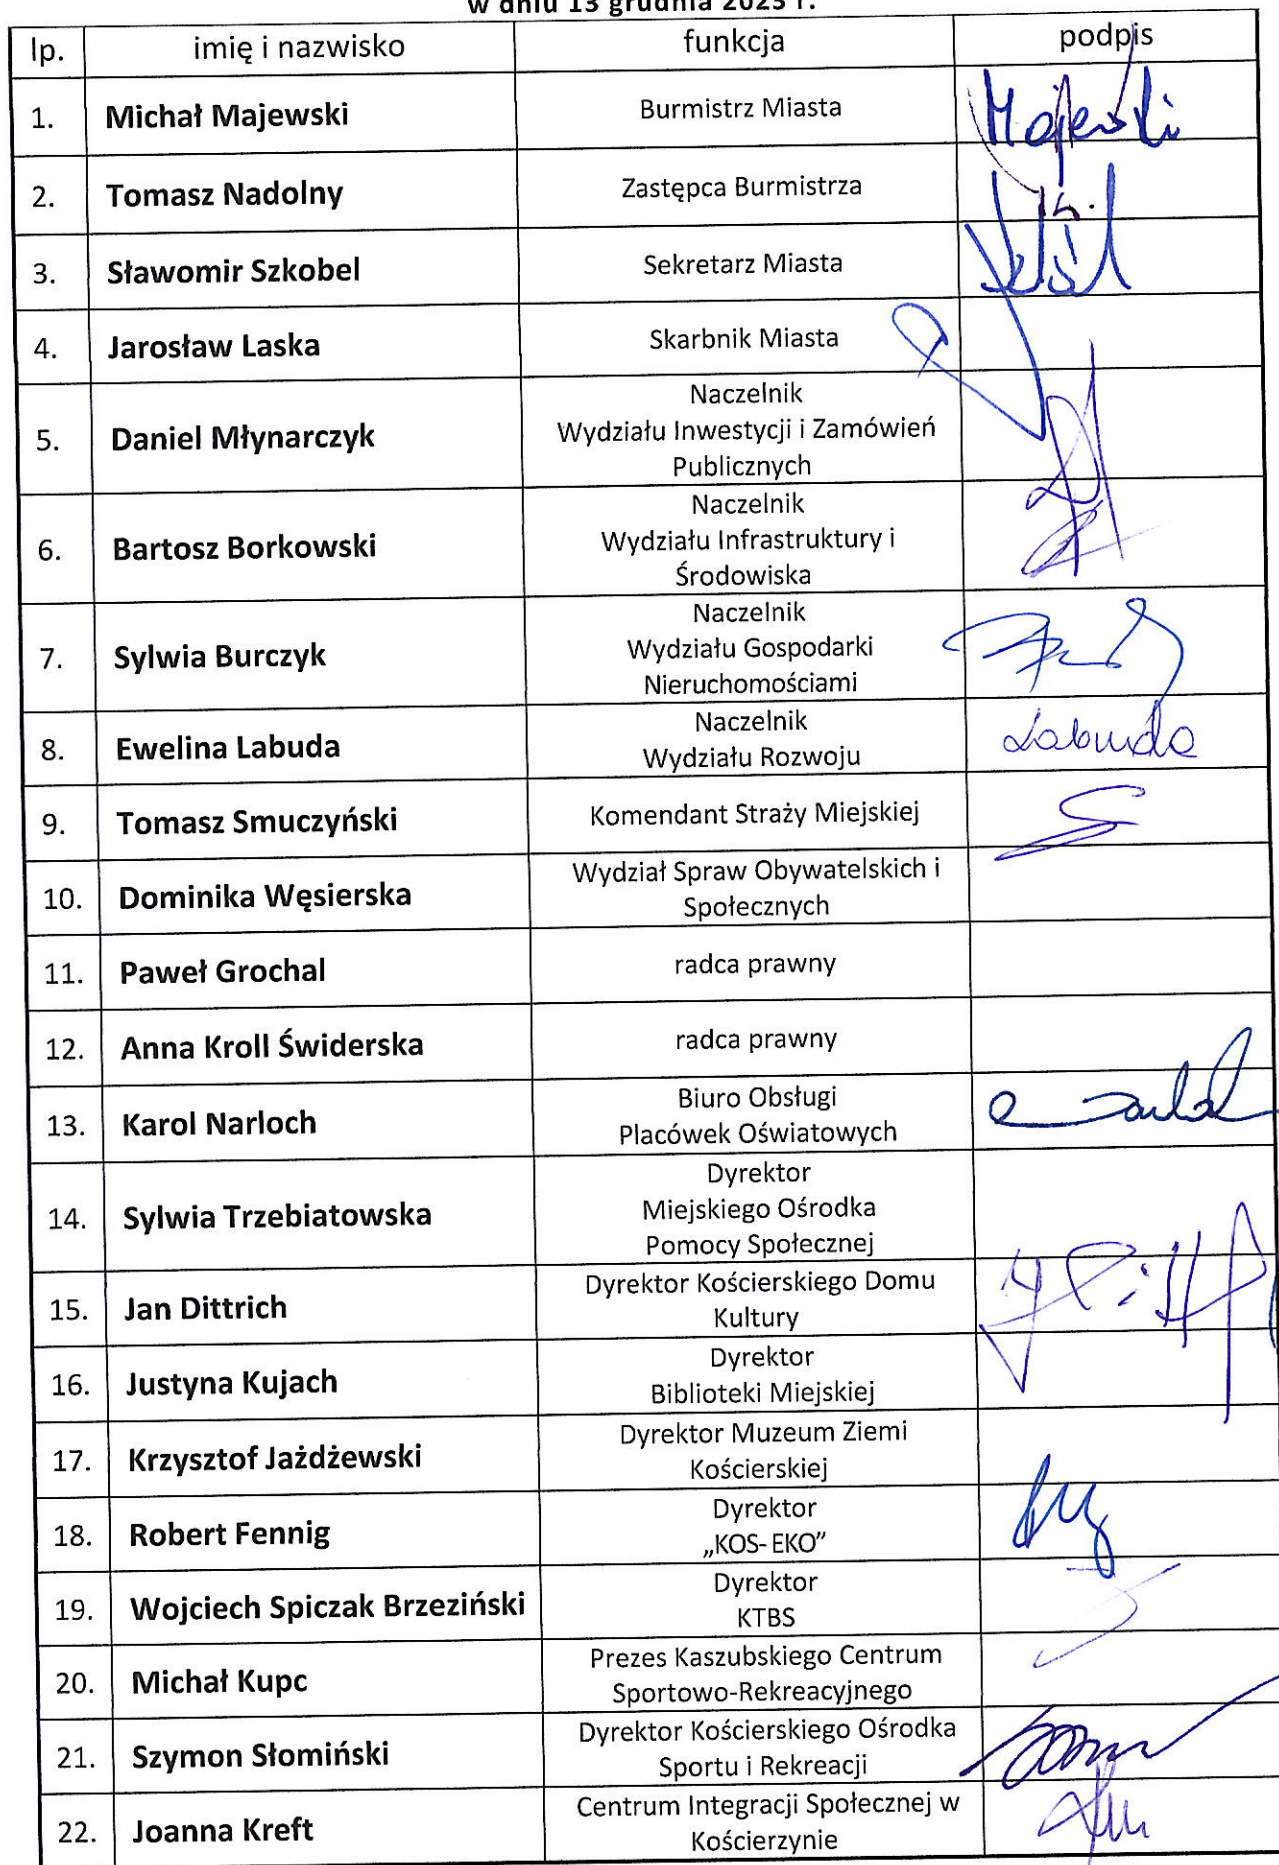 w dniu 13 grudnia 2023 r.
lp. imię i nazwisko funkcja podpis
1. Michał Majewski Burmistrz Miasta Majewski
2. Tomasz Nadolny Zastępca Burmistrza
3. Sławomir Szkobel Sekretarz Miasta
4. Jarosław Laska Skarbnik Miasta
5. Daniel Młynarczyk Naczelnik
Wydziału Inwestycji i Zamówień
Publicznych
6. Bartosz Borkowski Naczelnik
Wydziału Infrastruktury i
Środowiska
7. Sylwia Burczyk Naczelnik
Wydziału Gospodarki
Nieruchomościami
8. Ewelina Labuda Naczelnik
Wydziału Rozwoju Labuda
9. Tomasz Smuczyński Komendant Straży Miejskiej
10. Dominika Węsierska Wydział Spraw Obywatelskich i
Społecznych
11. Paweł Grochal radca prawny
12. Anna Kroll Świderska radca prawny
13. Karol Narloch Biuro Obsługi
Placówek Oświatowych
14. Sylwia Trzebiatowska Dyrektor
Miejskiego Ośrodka
Pomocy Społecznej
15. Jan Dittrich Dyrektor Kościerskiego Domu
Kultury
16. Justyna Kujach Dyrektor
Biblioteki Miejskiej
17. Krzysztof Jażdżewski Dyrektor Muzeum Ziemi
Kościerskiej
18. Robert Fennig Dyrektor
„KOS- EKO”
19. Wojciech Spiczak Brzeziński Dyrektor
KTBS
20. Michał Kupc Prezes Kaszubskiego Centrum
Sportowo-Rekreacyjnego
21. Szymon Słomiński Dyrektor Kościerskiego Ośrodka
Sportu i Rekreacji
22. Joanna Kreft Centrum Integracji Społecznej w
Kościerzynie